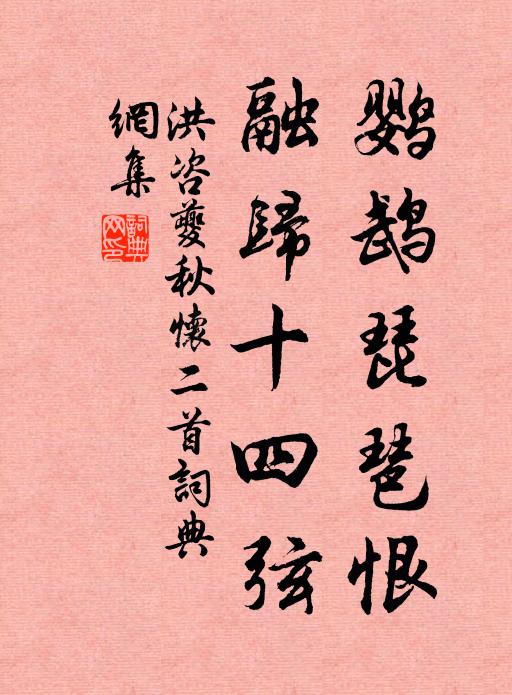 鹦鹉琵琶恨
融歸十四弦
洪咨夔秋懷二首詞典
網集
詞典
网印